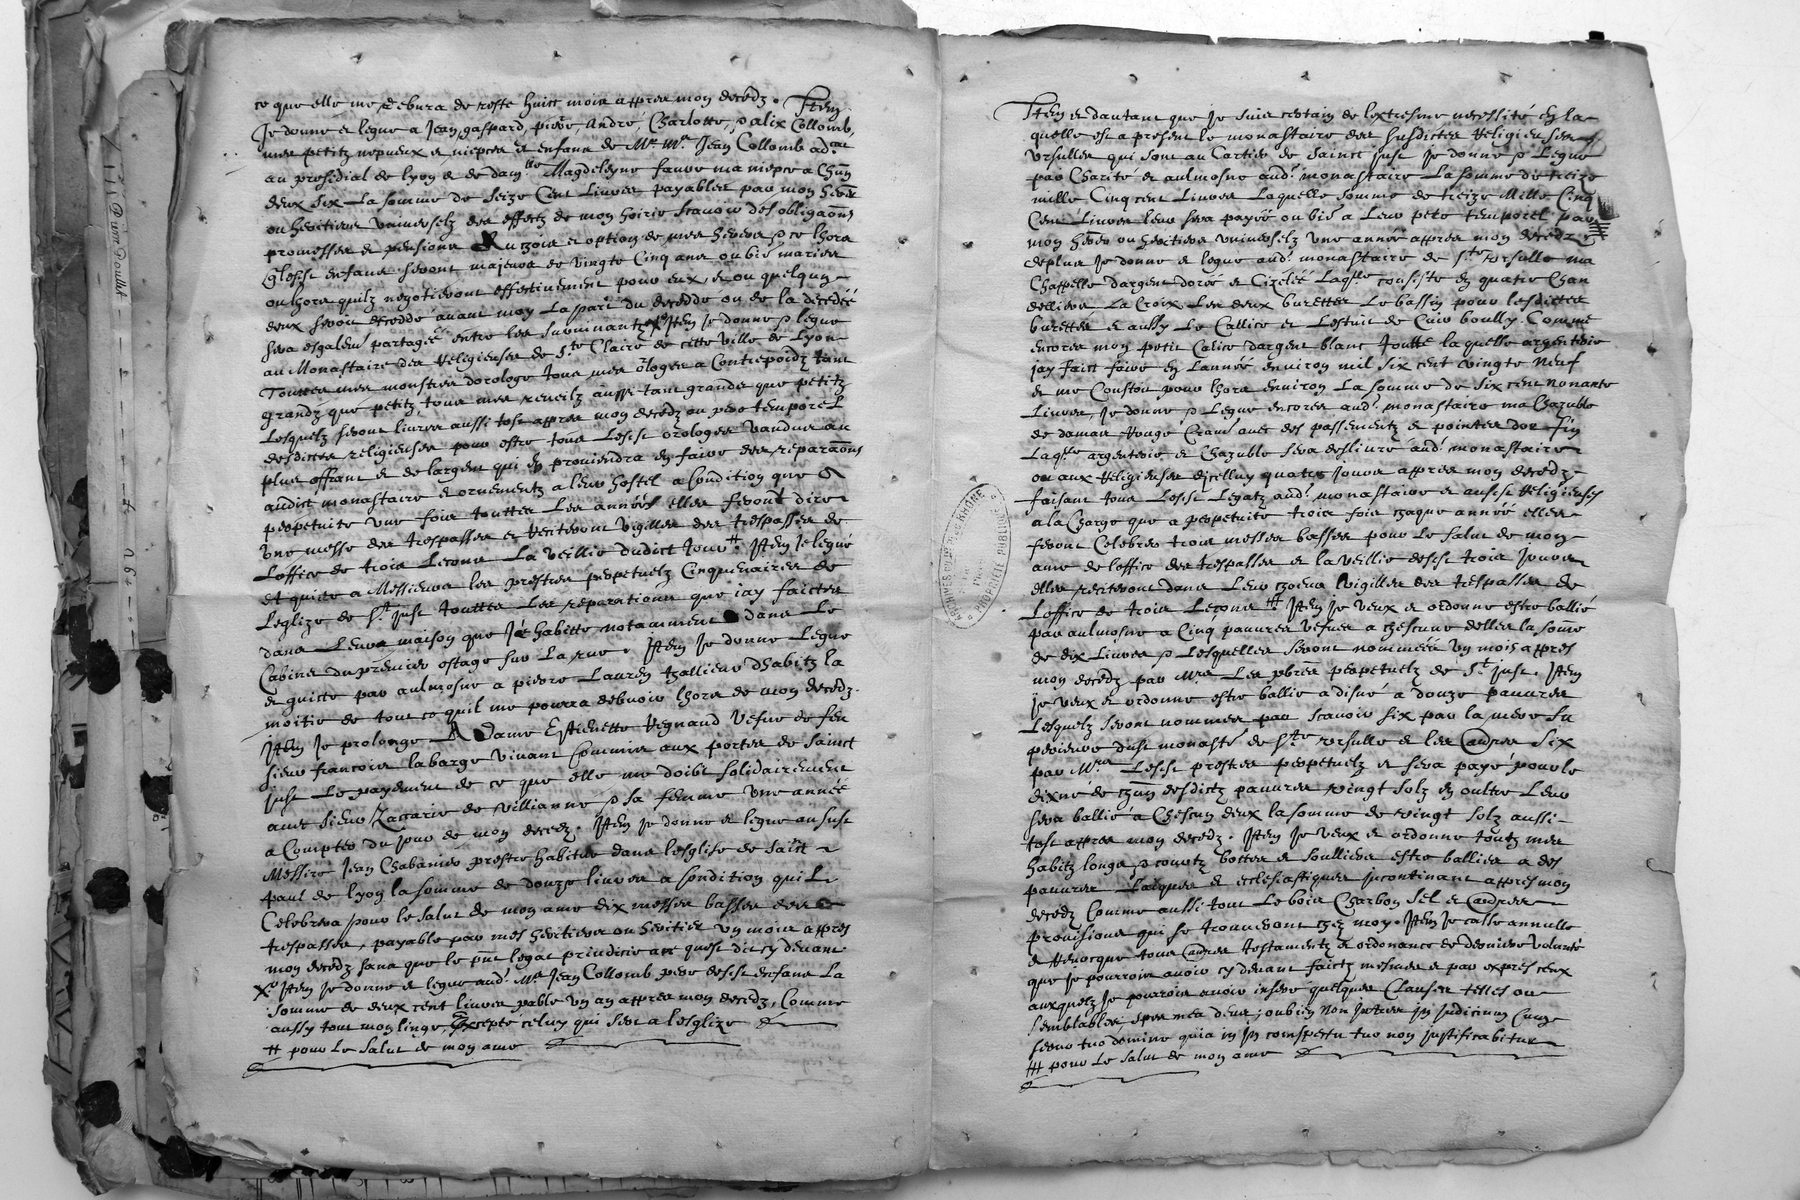 ce que elle me debvra de reste huict mois appres mon decedz. Item
Je donne et legue a Jean, gaspard, pierre, André, Charlotte, & alix Collomb,
mes petitz nepueux et niepces et enfans de Mr Me Jean Collomb adcat
au presidial de lyon et de damlle Magdeleyne faure ma niepce a Chun
deux six La somme de seize Cent Liures payables par mon herer
ou heritiers vniuerselz des effectz de mon hoirie scauoir des obligaons
promesses et pensions Au choix et option de mes heres & ce lhors
qlesdt enfans seront majeurs de vingts Cinq ans ou bié mariés
ou lhors quilz negotieront effectiuement pour eux, et ou quelqun
deux seroit decedde auant moy La part du decedde ou de la decedéé
sera esgalemt partagéé entre les suruiuantz Item Je donne & legue
au Monastaire des Religieuses de Ste Claire de citte ville de Lyon
Touttes mes monstres dorologe tous mes ologes a Contrepoidz tant
grandz que petitz tous mes reueilz aussi tant grands que petitz
Lesquelz seront liurés aussi tost appres mon decedz au pere temporel
desdictes religieuses pour estre tous Lesdt orologes vandus au
plus offrant et de largent qui en prouiendra en faire des reparaons
audict monastaire et ornementz a leur hostel a Condition que a
perpetuité vne fois touttes Les années elles feront dire
vne messe des trespasses et reciteront vigilles des trespasses de
Loffice de trois Lecons La veillie dudict Jour # Item Je legue
et quitte a Messieurs les prestres perpetuelz Cinquenaires de
Leglize de St Just touttes Les reparations que iay faictes
dans Leurs maison que Jé habitte notamment dans Le
Cabinet du premier estage sur La rue. Item Je donne Legue
et quitte par aulmosne a pierre Lauren tzallieur dhabitz la
moitie de tout ce quil me pourra debuoir lhors de mon decedz.
Item Je prolonge A Dame Estienette Regnaud vefue de feu
sieur francois labarge viuant Commis aux portes de sainct
Just Le payement de ce que elle me doibt solidairement
auec sieur Zaccarie de villianne & sa femme vne année
a Compter du jour de mon decedz. Item Je donne et legue au susdt
Messire Jean Chabanier prestre habitué dans lesglise de sainct
paul de Lyon la somme de douze liures a Condition quil
Celebrera pour le salut de mon ame dix messes basses des
trespasses, payable par mes heritiers ou heritier vn mois appres
mon decedz sans que le pnt legat preiudicie au quest dit cy deuant
X Item Je donne et legue audt Mr Jean Collomb pere desdt enfans La
somme de deux cent liures pable vn an appres mon decedz, Comme
aussy tout mon linge, Excepté celuy qui sert a lesglize
# pour Le salut de mon ame
Item et dautant que Je suis certain de lextresme necessité en la
quelle est a present le monastaire des susdictes Religieuses
Vrsulles qui sont au Cartier de sainct Just Je donne & Legue
par Charité et aulmosne audt monastaire La somme de treize
mille Cinq cent Liures Laquelle somme de treize Mille Cinq
Cent Liures leur sera payéé ou bié a Leur pere temporel par
mon herer ou heritiers vniuerselz vne année appres mon decedz
deplus Je donne et legue audt monastaire de Ste Vrsulle ma
Chappelle dargent dorée et Cizéléé Laqlle consiste en quatre Chan
delliers La Croix Les deux burettes Le bassin pour lesdictes
burettes et aussy Le Callice et Lestuit de Cuir boully. Comme
encores mon petit Calice dargent blanc Toutte laquelle argenterie
jay faict faire en Lannéé enuiron mil six cent vingts neuf
et me Cousta pour lhors enuiron La somme de six cent nonante
Liures, Je donne & Legue encores audt monastaire ma Chazuble
de damas Rouge Cramé auec des passementz et pointes dor fin
Laqlle argenterie et Chazuble sera desliuré audt monastaire
ou aux Religieuses dicelluy quatre jours appres mon decedz
faisant tous Lesdt Legatz audt monastaire et ausdt Religieuses
a la Charge que a perpetuité trois fois chaque année elles
feront Celebrer trois messes basses pour Le salut de mon
ame de loffice des trespasses et la veillie desdt trois jours
elles reciteront dans Leur choeur vigilles des trespasses de
Loffice de trois Lecons # Item Je veux et ordonne estre ballié
par aulmosne a Cinq pauures vefues a chescune delles la some
de dix Liures & Lesquelles seront nomméés vn mois appres
mon decedz par Mrs Les pbres perpetuelz de St Just. Item
Je veux et ordonne estre ballie a disné a douze pauures
Lesquelz seront nommes par scauoir six par la mere su
perieure dudt monasté de Ste vrsulle et les Autres Six
par Mrs Lesdt prestres perpetuelz et sera payé pour le
dixné de chun desdictz pauures vingt solz en oultre Leur
sera ballié a Chescun deux la somme de vingt solz aussi
tost appres mon decedz. Item Je veux et ordonne toutz mes
habitz longs & courtz bottes et soulliers estre ballies a des
pauures Laiques et ecclesiastiques incontinant appres mon
decedz Comme aussi tout Le bois Charbon sel et Autres
prouisions qui se trouueront chez moy. Item Je casse annulle
et Reuocque tous Autres testamentz et ordonance de derniere volunté
que Je pourrois auoir cy deuant faictz mesmes et par expres ceux
auxquelz Je pourrois auoir inseré quelques Clauses telles ou
semblables spes mea deus; oubien Non Intres in judicium Cum
seruo tuo domine quia in conspectu tuo non justificabitur
# pour Le salut de mon ame
ARCHIVES DU RHÔNE
PROPRIÉTÉ PUBLIQUE